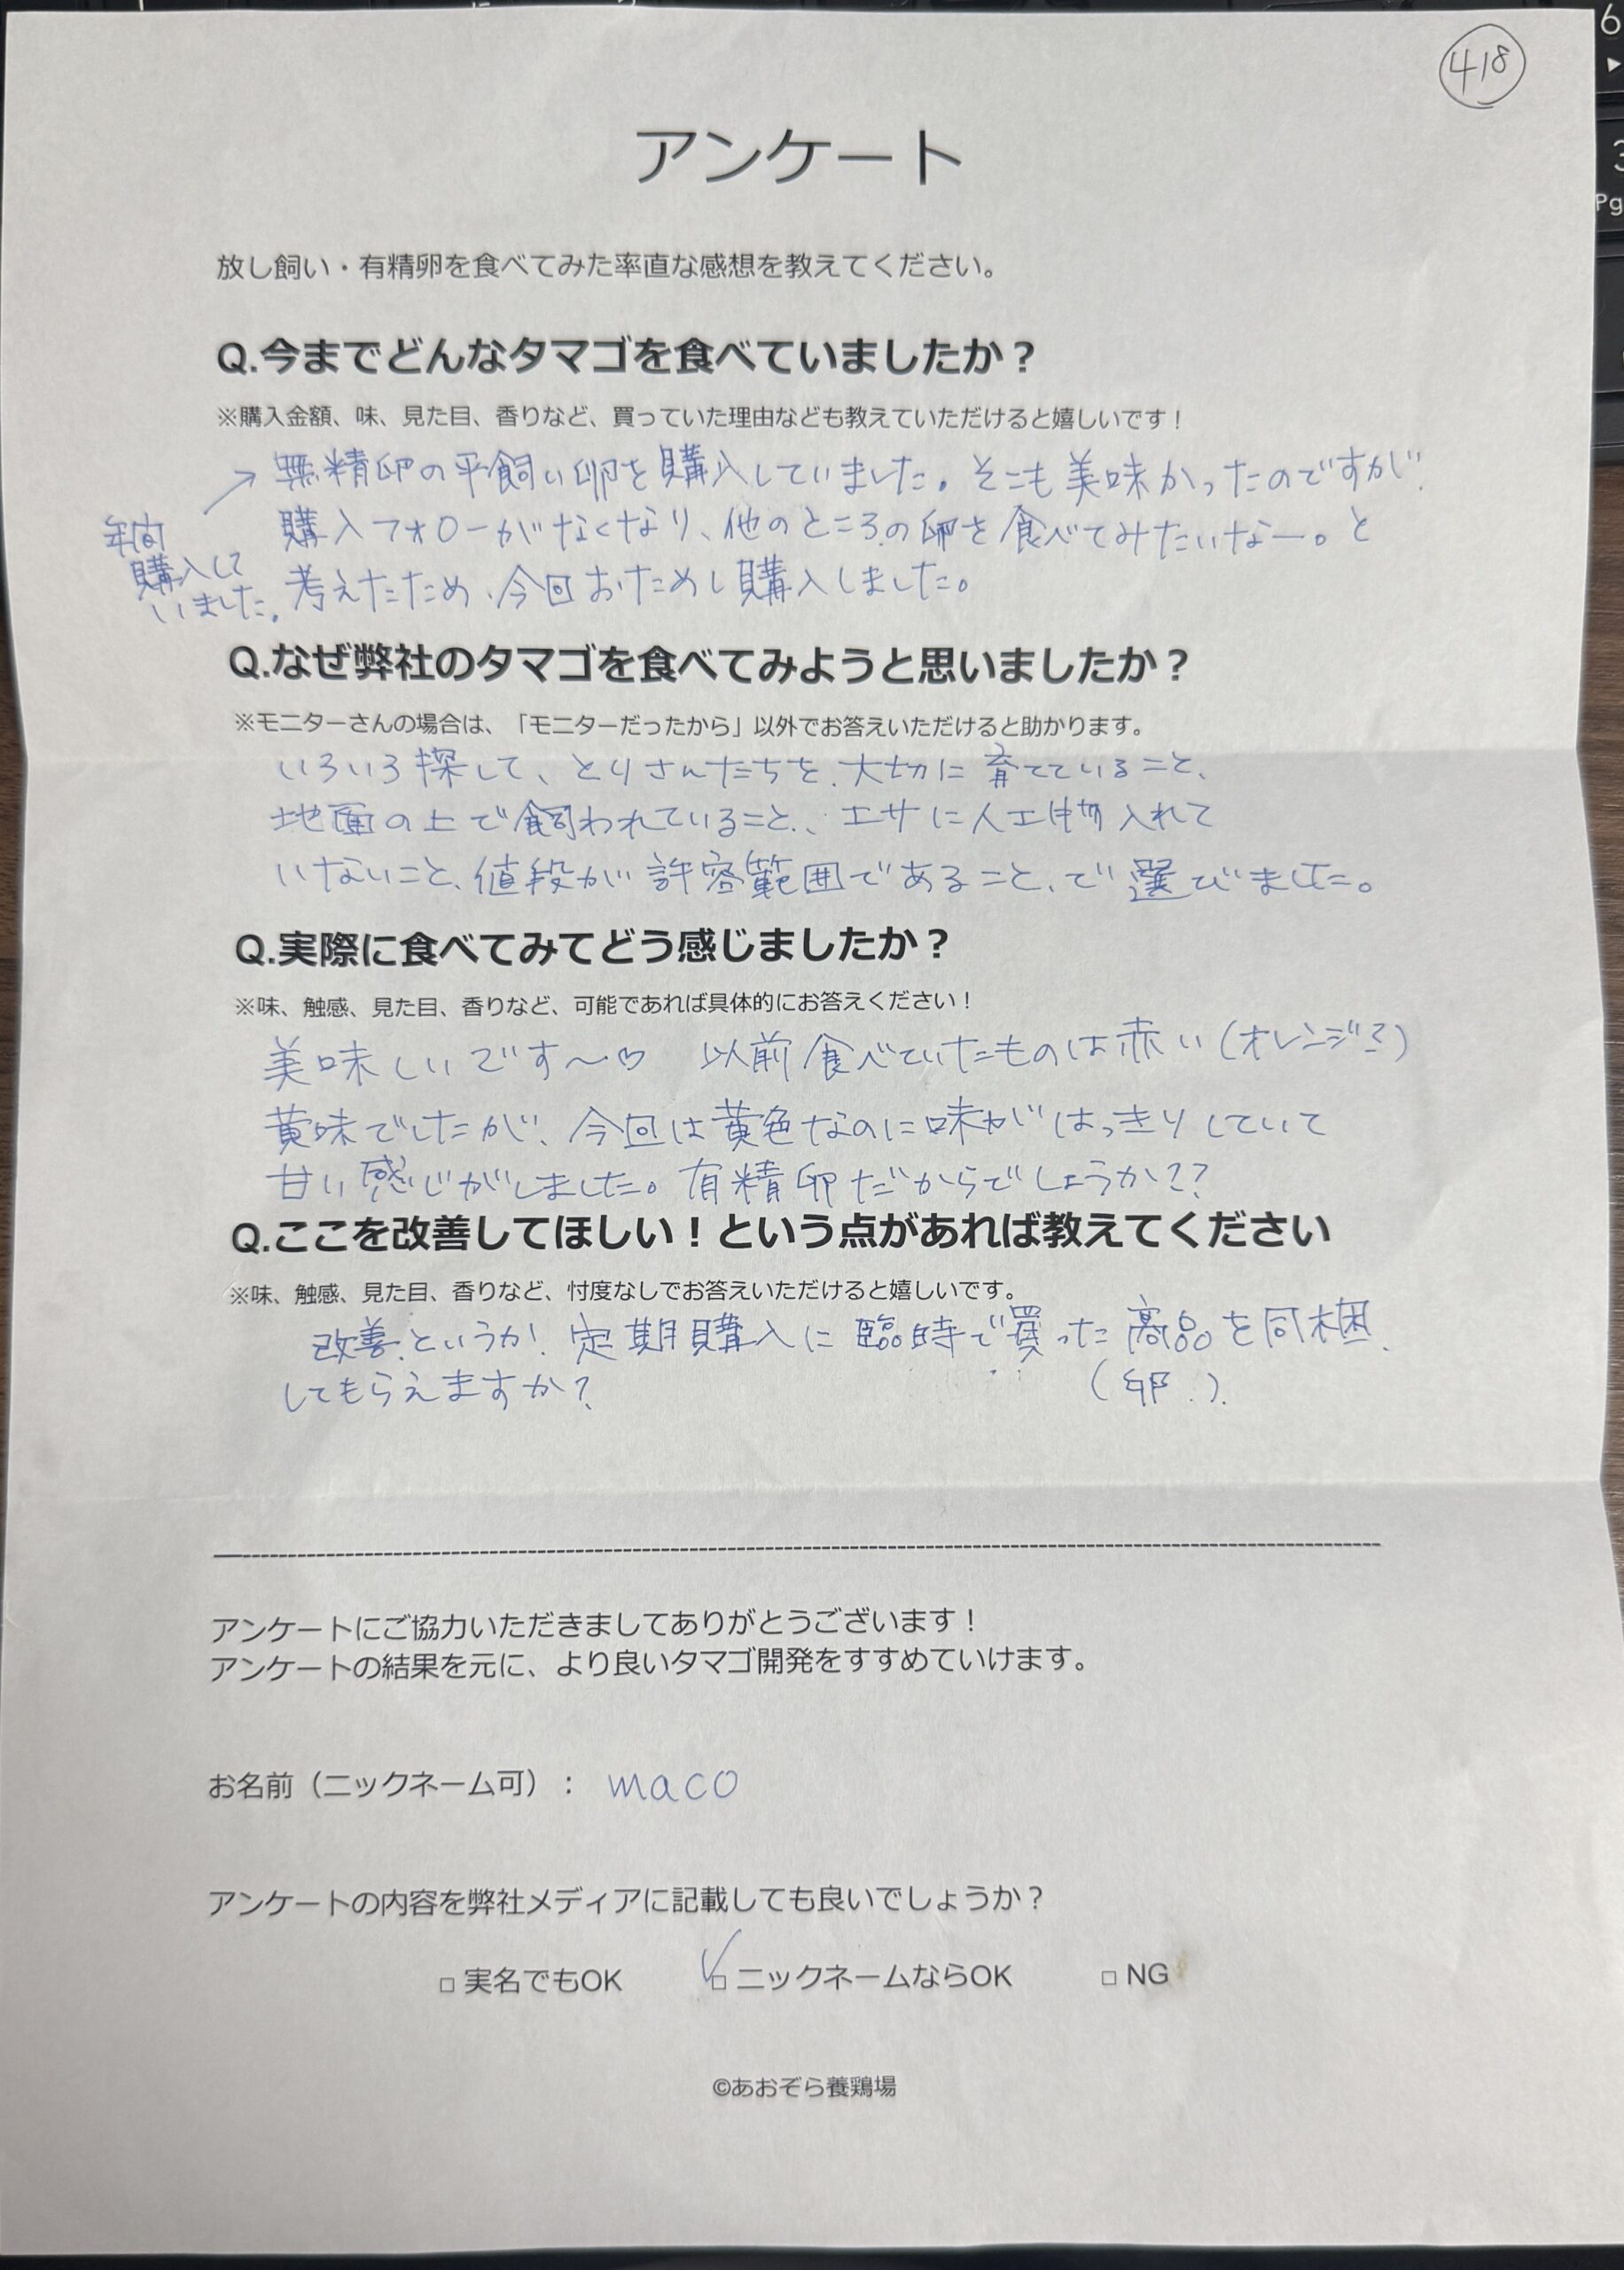 418
アンケート
放し飼い・有精卵を食べてみた率直な感想を教えてください。
Q.今までどんなタマゴを食べていましたか？
※購入金額、味、見た目、香りなど、買っていた理由なども教えていただけると嬉しいです！
→ 無精卵の平飼い卵を購入していました。そこも美味かったのですが、
購入フォローがなくなり、他のところの卵を食べてみたいなー。と
考えたため、今回おためし購入しました。
年間
購入して
いました。
Q.なぜ弊社のタマゴを食べてみようと思いましたか？
※モニターさんの場合は、「モニターだったから」以外でお答えいただけると助かります。
いろいろ探して、とりさんたちを、大切に育てていること、
地面の上で飼われていること、エサに人工物入れて
いないこと、値段が許容範囲であること、で選びました。
Q.実際に食べてみてどう感じましたか？
※味、触感、見た目、香りなど、可能であれば具体的にお答えください！
美味しいです～♡ 以前食べていたものは赤い(オレンジ？)
黄味でしたが、今回は黄色なのに味がはっきりしていて
甘い感じがしました。有精卵だからでしょうか？？
Q.ここを改善してほしい！という点があれば教えてください
※味、触感、見た目、香りなど、忖度なしでお答えいただけると嬉しいです。
改善、というか！定期購入に臨時で買った商品を同梱
(卵)
してもらえますか？
アンケートにご協力いただきましてありがとうございます！
アンケートの結果を元に、より良いタマゴ開発をすすめていけます。
お名前（ニックネーム可）： maco
アンケートの内容を弊社メディアに記載しても良いでしょうか？
□ 実名でもOK ☑ ニックネームならOK □ NG
©あおぞら養鶏場